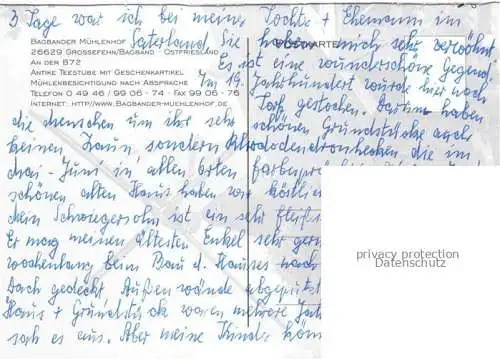 3 Tage war ich bei meiner Tochter + Ehemann im
Saterland. Sie haben mich sehr verwöhnt
BAGBANDER MÜHLENHOF
26629 GROSSEFEHN/BAGBAND · OSTFRIESLAND
AN DER B72
ANTIKE TEESTUBE MIT GESCHENKARTIKEL
MÜHLENBESICHTIGUNG NACH ABSPRACHE
TELEFON 0 49 46 / 99 06 - 74 · FAX 99 06 - 76
INTERNET: HTTP//WWW.BAGBANDER-MUEHLENHOF.DE
POSTKARTE
Es ist eine wunderschöne Gegend
Im 19. Jahrhundert wurde hier noch
Torf gestochen. Darum haben
die Menschen um ihr sehr schönen Grundstücke auch
keinen Zaun, sondern Rhododendronhecken die im
Mai - Juni in allen
schönen alten Haus haben wir köstlich
Mein Schwiegersohn ist ein sehr
Er mag meinen ältesten Enkel sehr
wochenlang beim Bau d. Hauses nach
Dach gedeckt Außen wände
Haus + Grundstück waren mehrere
sah es aus. Aber meine Kinder
privacy protection
Datenschutz